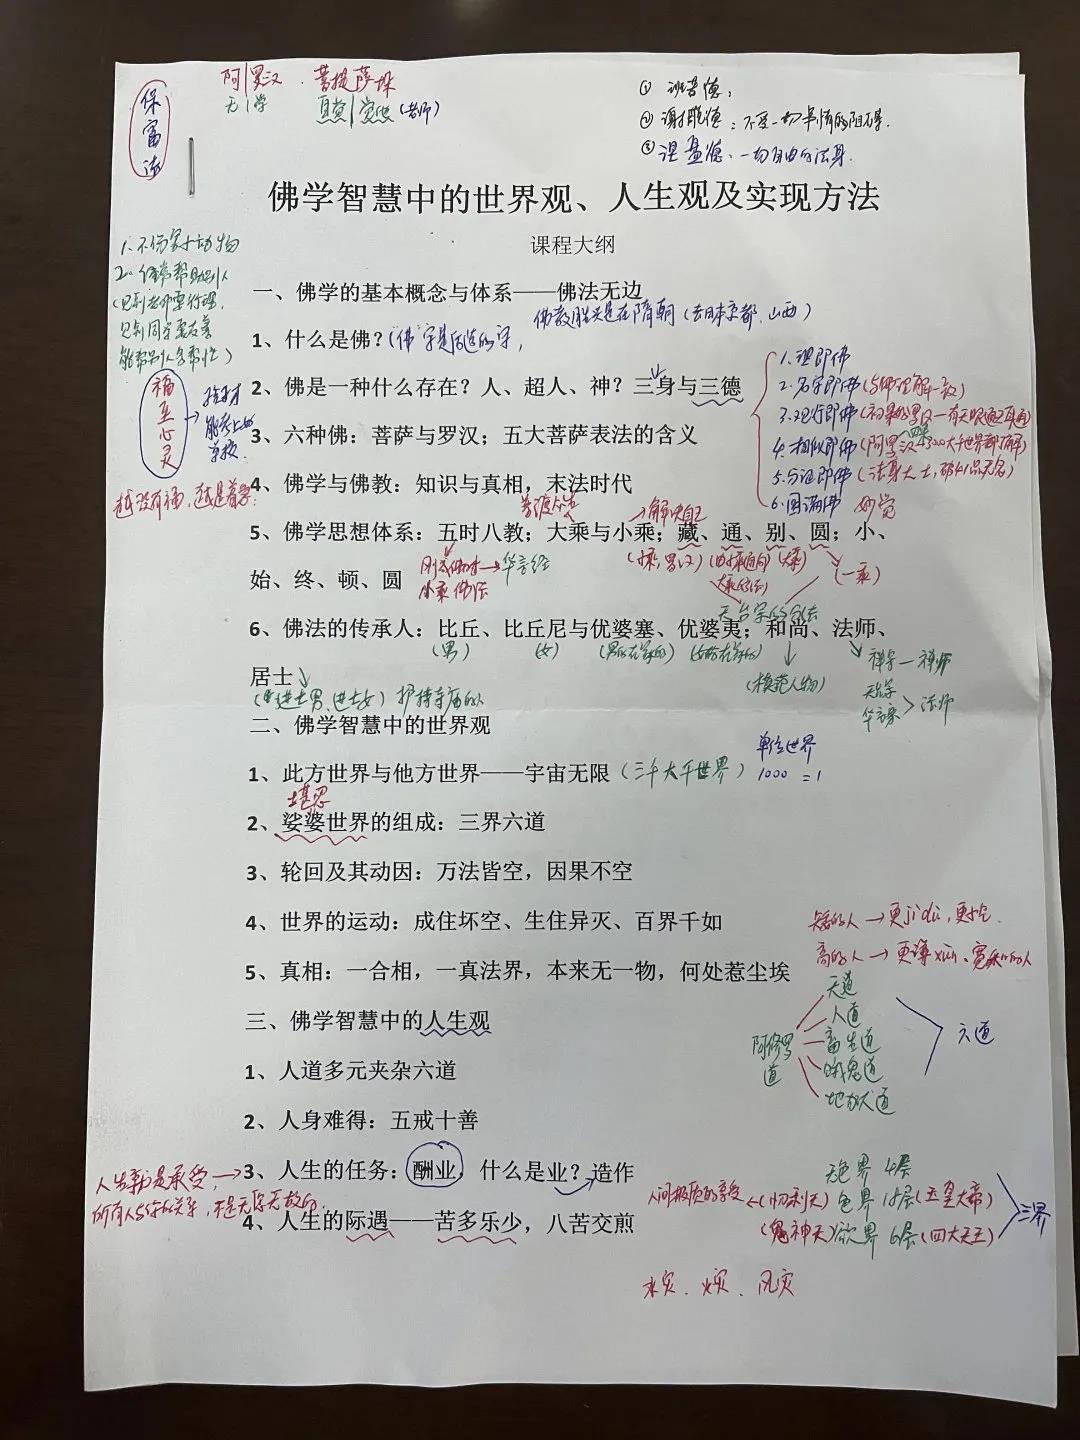 保富法
阿|罗汉 . 菩提萨埵
无|学 自觉|觉他(老师)
① 般若德;
② 解脱德:不受一切事情的阻碍.
③ 涅槃德、一切自由的法身.
佛学智慧中的世界观、人生观及实现方法
课程大纲
1.不伤害小动物
2.经常帮助别人
(见到老师要行理.
见到同学要友善
能帮别人多帮忙)
福至心灵
考上
学校.
越没有福,越是着急.
一、佛学的基本概念与体系——佛法无边
佛教胜于是在隋朝(去日本京都、山西)
1、什么是佛?
("佛"字是后造的字,
2、佛是一种什么存在?人、超人、神?三身与三德
1.理即佛
2.名字即佛(与佛理解一致)
3.观行即佛
4.相似即佛
5.分证即佛
6.圆满佛 妙觉
3、六种佛:菩萨与罗汉;五大菩萨表法的含义
4、佛学与佛教:知识与真相,末法时代
普渡众生
→解决自己
5、佛学思想体系:五时八教;大乘与小乘;藏、通、别、圆;小、
→华言经
小乘佛法
(大乘)
(一乘)
始、终、顿、圆
天台宗的分法
6、佛法的传承人:比丘、比丘尼与优婆塞、优婆夷;和尚、法师、
(男)
(女)
(男的在家的)
(女的在家的)
(模范人物)
禅宗—禅师
天台宗
华言宗
>法师
居士
(进士男、进士女)护持寺庙的人
二、佛学智慧中的世界观
单位世界
1000 =1
1、此方世界与他方世界——宇宙无限(三千大千世界)
堪忍
2、娑婆世界的组成:三界六道
3、轮回及其动因:万法皆空,因果不空
4、世界的运动:成住坏空、生住异灭、百界千如
矮的人→更jí dù,更
高的人→更谦xūn、宽 的人
5、真相:一合相,一真法界,本来无一物,何处惹尘埃
三、佛学智慧中的人生观
阿修罗道
天道
人道
畜生道
饿鬼道
地狱道
六道
1、人道多元夹杂六道
2、人身难得:五戒十善
3、人生的任务:酬业,什么是业?造作
人生就是承受,→
所有人与你的关系,不是无缘无故的.
4、人生的际遇——苦多乐少,八苦交煎
无色界 4层
人间极顶的享受←(忉利天)色界 18层(玉皇大帝)
(鬼神天)欲界 6层(四大天王)
三界
水灾.火灾.风灾